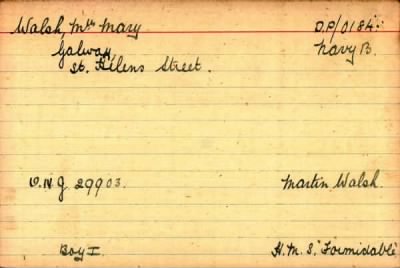 Walsh, Mrs Mary D.P/0184.
Galway, Navy B.
St. Helens Street.
O.N J 29903. Martin Walsh.
Boy I H.M.S. "Formidable"